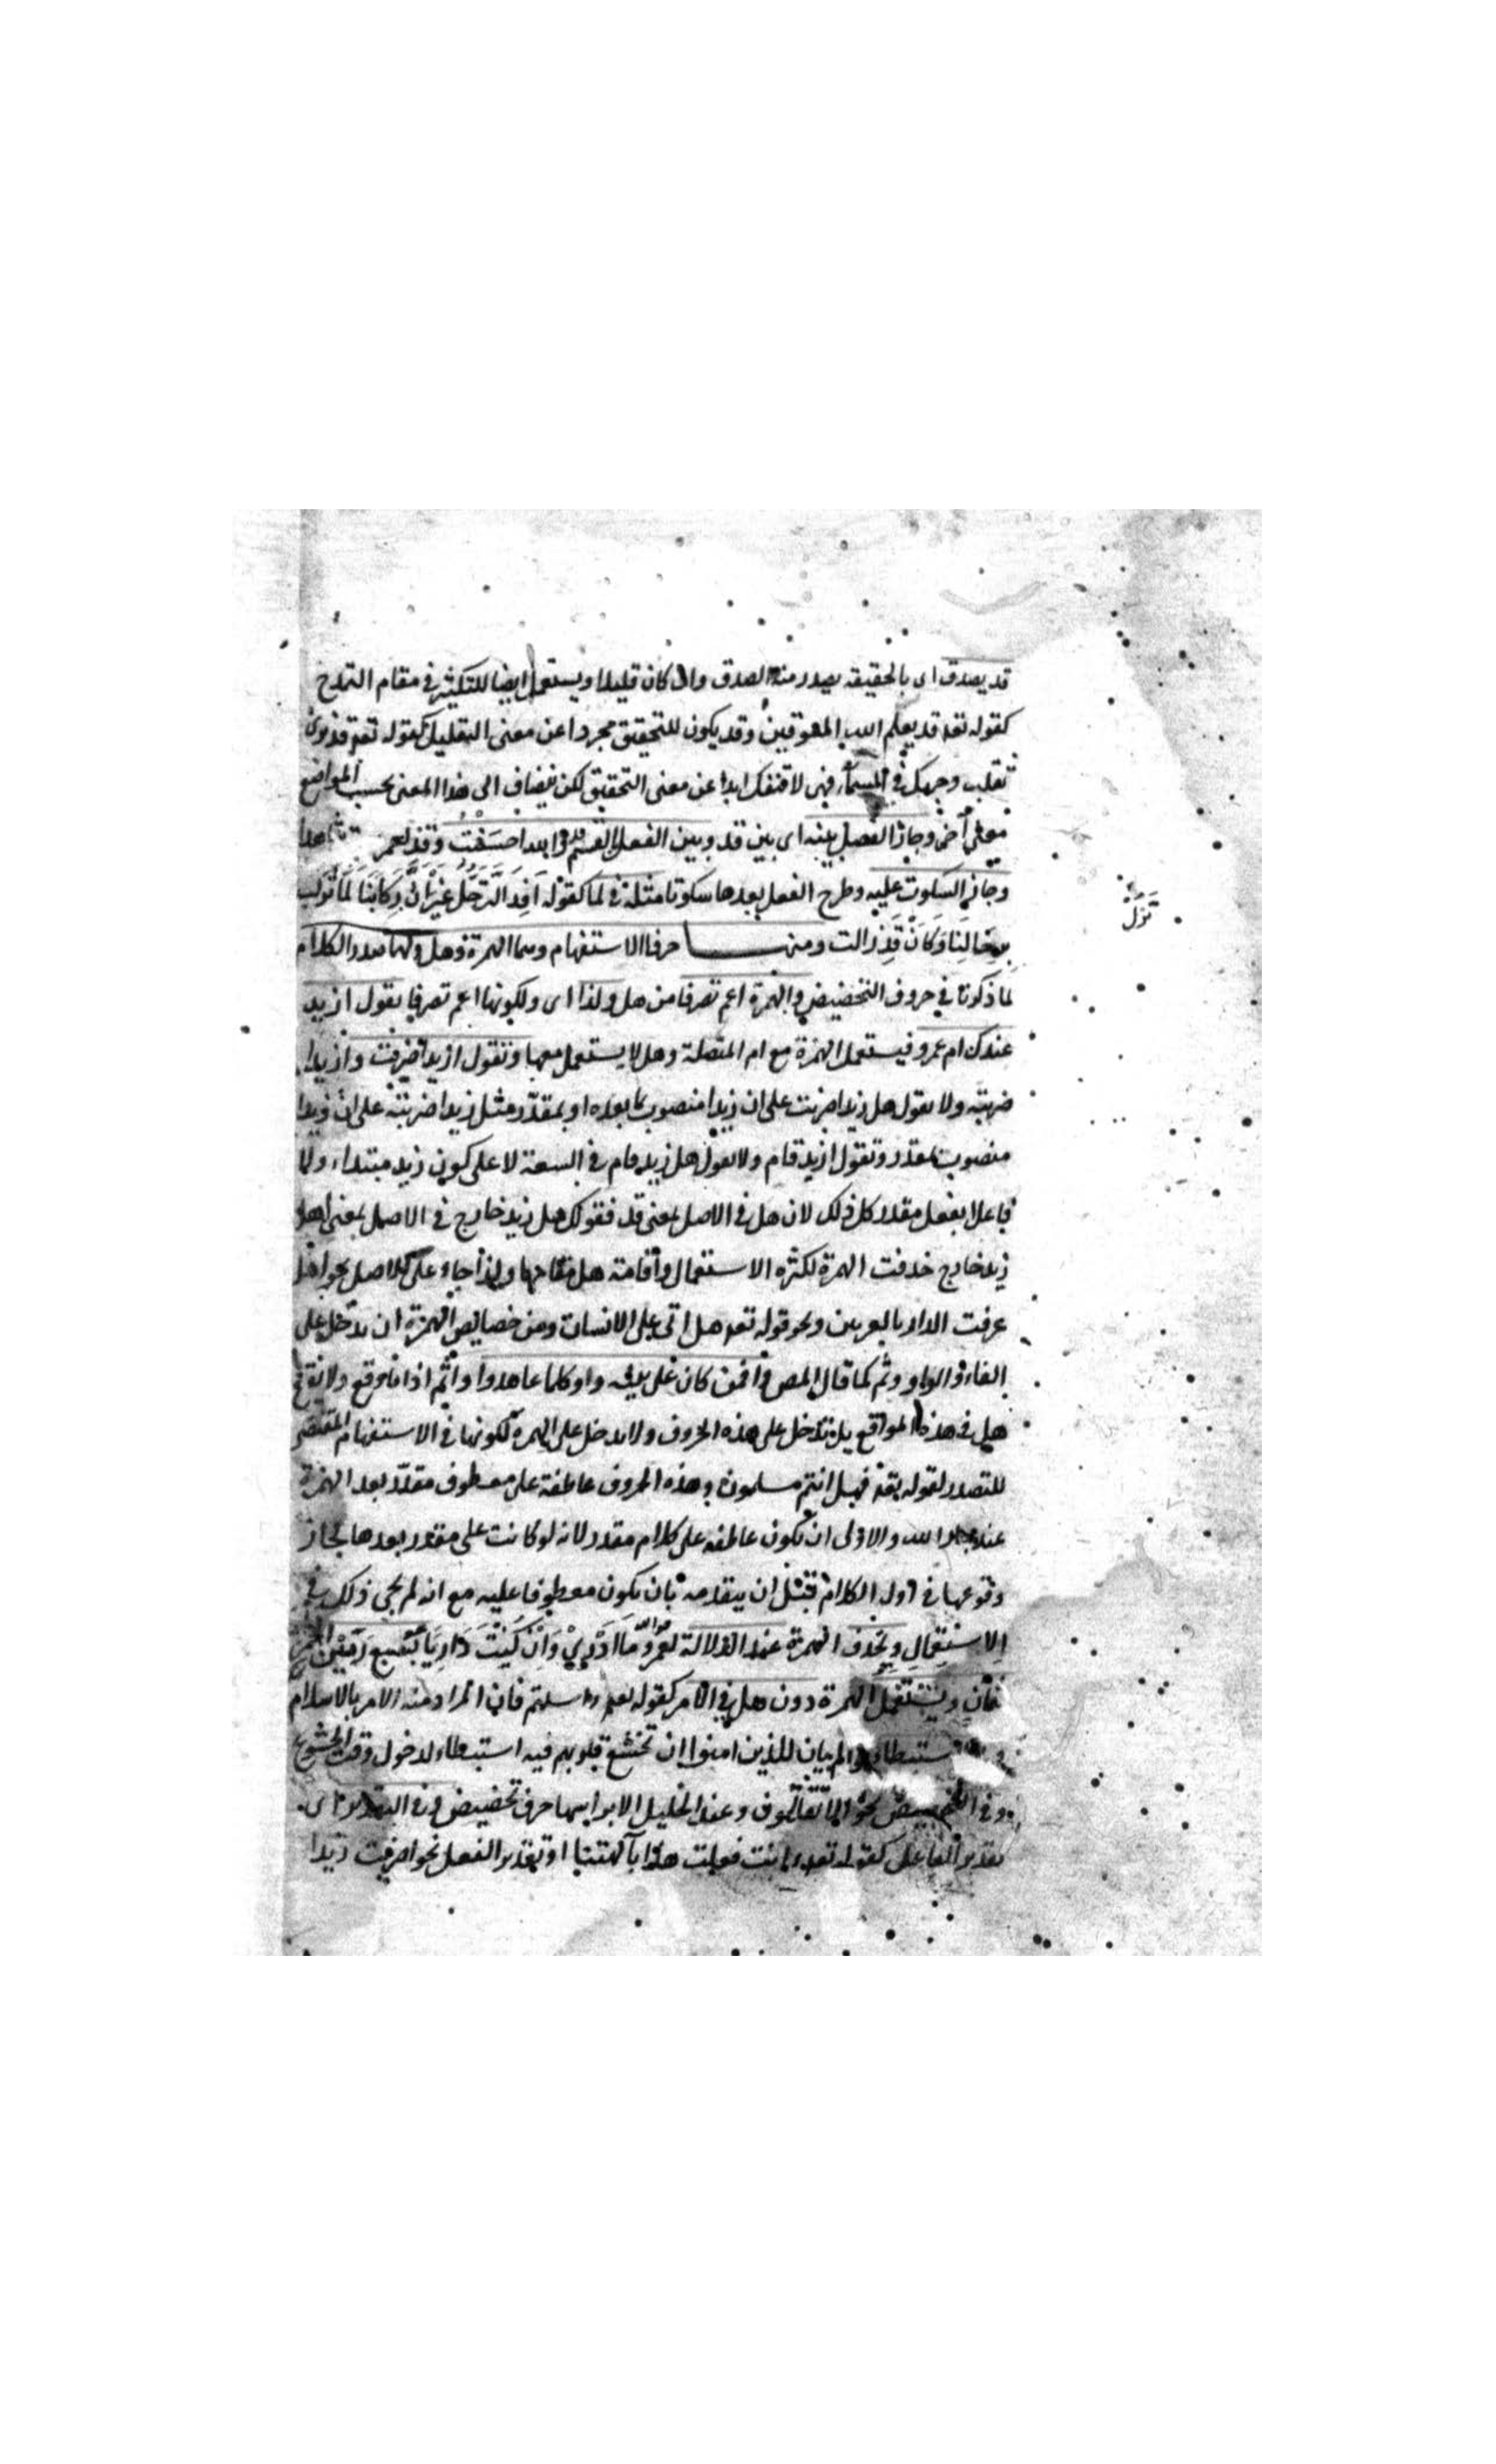 قد يصدق اى بالحقيقة يصدر منه الصدق وان كان قليلا ويستعمل ايضا للتكثير فى مقام التمدح
كقوله تعه قد يعلم الله المعوقين وقد يكون للتحقيق مجردا عن معنى التقليل كقوله تعه قد نرى
تقلب وجهك فى السماء فهى لا تنفك ابدا عن معنى التحقيق لكن يضاف الى هذا المعنى بحسب المواضع
معنى آخر وجاز الفصل بينه اى بين قد وبين الفعل بالقسم نحو قد والله احسنت وقد لعمرى
وجاز السكوت عليه وطرح الفعل بعدها سكوتا مثله فى لما كقوله اَفِدَ التَّرَحُّلُ غَيْرَ اَنَّ رِكَابَنَا لَمَّا تَزُلْ
تزل
بِرِحَالِنَا وَكَاَنْ قَدِ زالت ومنها حرفا الاستفهام وهما الهمزة وهل ولهما صدر الكلام
لما ذكرنا فى حروف التحضيض والهمزة اعم تصرفا من هل ولذا اى ولكونها اعم تصرفا يقول ازيد
عندك ام عمرو فيستعمل الهمزة مع ام المتصلة وهل لا يستعمل معها وتقول ازيدا ضربت وازيدا
ضربته ولا يقول هل زيدا ضربت على ان زيدا منصوب بما بعده او بمقدر مثل زيدا ضربته على ان زيدا
منصوب بمقدر وتقول ازيد قام ولا يقول هل زيد قام فى السعة لا على كون زيد مبتداء ولا
فاعلا بفعل مقدر كل ذلك لان هل فى الاصل بمعنى قد فقولك هل زيد خارج فى الاصل بمعنى اهل
زيد خارج حذفت الهمزة لكثرة الاستعمال واقامة هل مقامها ولذا جاء على الاصل نحو اهل
عرفت الدار بالعريين ونحو قوله تعه هل اتى على الانسان ومن خصايص الهمزة ان يدخل على
الفاء والواو وثم كما قال المص فى افمن كان على بينة واوكلما عاهدوا واثم اذا ما وقع ولا يقع
هل فى هذه المواقع بل يدخل على هذه الحروف ولا يدخل على الهمزة لكونها فى الاستفهام المقتضى
للتصدر لقوله تعه فهل انتم مسلمون وهذه الحروف عاطفة على معطوف مقدر بعد الهمزة
عند جار الله والاولى ان يكون عاطفه على كلام مقدر لانه لو كانت على مقدر بعدها لجاز
وقوعها فى اول الكلام قبل ان يتقدمه بان يكون معطوفا عليه مع انه لم يجئ ذلك فى
الاستعمال ويحذف الهمزة عند الدلالة لعمرك ما ادرى وان كنت داريا بسبع رمين الجمر
ثمان ويستعمل الهمزة دون هل فى الامر كقوله تعه ءاسلمتم فان المراد منه الامر بالاسلام
الم يان للذين امنوا ان تخشع قلوبهم فيه استبطاء لدخول وقت الخشوع
وعند الخليل حرف تحضيض وفى التقدير اى
بتقدير الفاعل كقوله تعه ءانت فعلت هذا بآلهتنا او بتقدير الفعل نحو اضربت زيدا